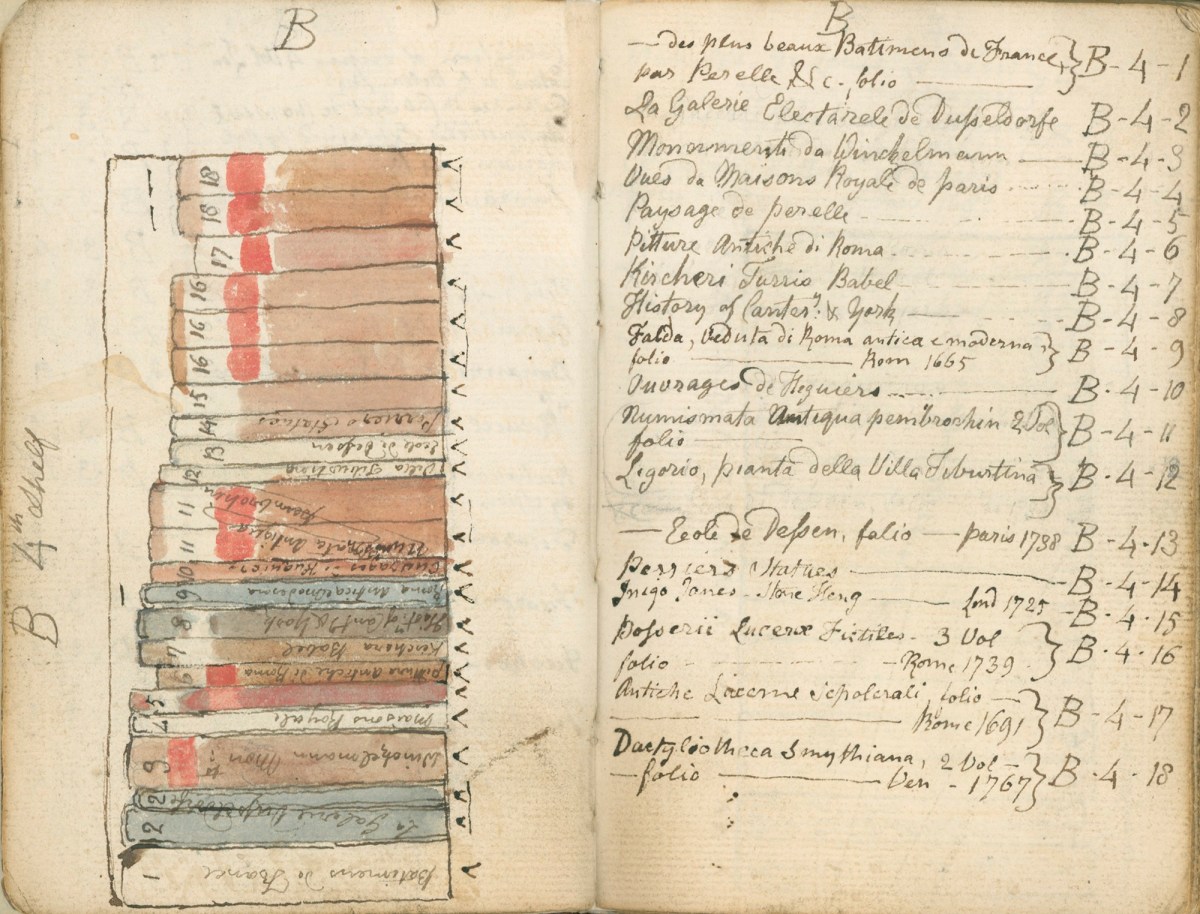 B
B 4th Shelf
18
18
17
16
16
16
15
14 Perriers Statues
13 Ecole di Dessen
12 Villa Tiburtina
11 Pembrochin
11 Numismata Antiqua
10 Ouvrages
9 Roma Antica e moderna
8 Hist.y of Cant.y & York
7 Kircheri Babel
6 pitture Antiche di Roma
5
4 Maisons Royale
3 Winckelmann Mon
2
2 La Galerie Dusseldorfe
1 Batimens de France
B
— des plus beaux Batimens de France, par Perelle &c. folio — B-4-1
La Galerie Electarele de Dusseldorfe B-4-2
Monumenti da Winckelmann — B-4-3
Vues da Maisons Royale de paris B-4-4
Paysage de perelle B-4-5
Pitture Antiche di Roma B-4-6
Kircheri Turris Babel B-4-7
History of Canter.y & York B-4-8
Falda, Veduta di Roma antica e moderna, B-4-9
folio — Rom 1665
Ouvrages de Heguiers B-4-10
Numismata Antiqua pembrochin 2 Vol B-4-11
folio —
Ligorio, pianta della Villa Tiburtina B-4-12
— Ecole de Dessen, folio — paris 1738 B-4-13
Perriers Statues — B-4-14
Inigo Jones - Stone Heng — Lond 1725 - B-4-15
Passerii Lucernæ Fictiles - 3 Vol B-4-16
folio — Rome 1739
Antiche Lucerne sepolcrali, folio — B-4-17
— Rome 1691
Dactyliotheca Smythiana, 2 Vol — B-4-18
— folio — Ven - 1767